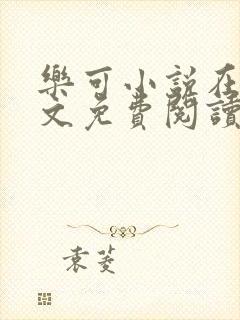 樂可小說在
文免費閱讀
袁菱